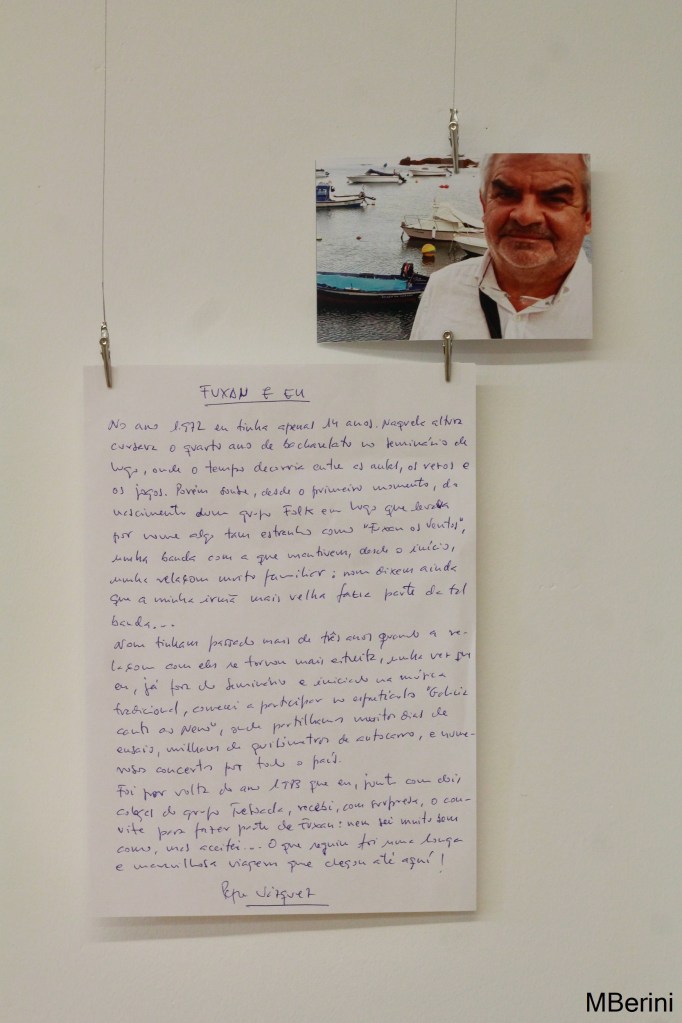 FUXAN E EU
No ano 1972 eu tinha apenas 14 anos. Naquela altura
cursava o quarto ano de bacharelato no seminário de
Lugo, onde o tempo decorria entre as aulas, os rezos e
os jogos. Porém soube, desde o primeiro momento, do
nascimento dum grupo Folk em Lugo que levava
por nome algo tam estranho como "Fuxan os Ventos",
unha banda com a que mantivem, desde o início,
unha relaçom muito familiar; nom dixem ainda
que a minha irmã mais velha fazia parte da tal
banda...
Nom tinham passado mais de três anos quando a re-
laçom com eles se tornou mais estreita, unha vez que
eu, já fora do Seminário e iniciado na música
tradicional, comecei a participar no espetáculo "Galicia
canta ao Neno", onde partilhamos muitos dias de
ensaio, milhares de quilómetros de autocarro, e nume-
rosos concertos por todo o país.
Foi por volta do ano 1983 que eu, junto com dois
colegas do grupo Treboada, recebi, com surpresa, o con-
vite para fazer parte de Fuxan: nem sei muito bem
como, mas aceitei... O que seguiu foi uma longa
e maravilhosa viagem que chegou até aquí!
Pepe Vázquez
MBerini